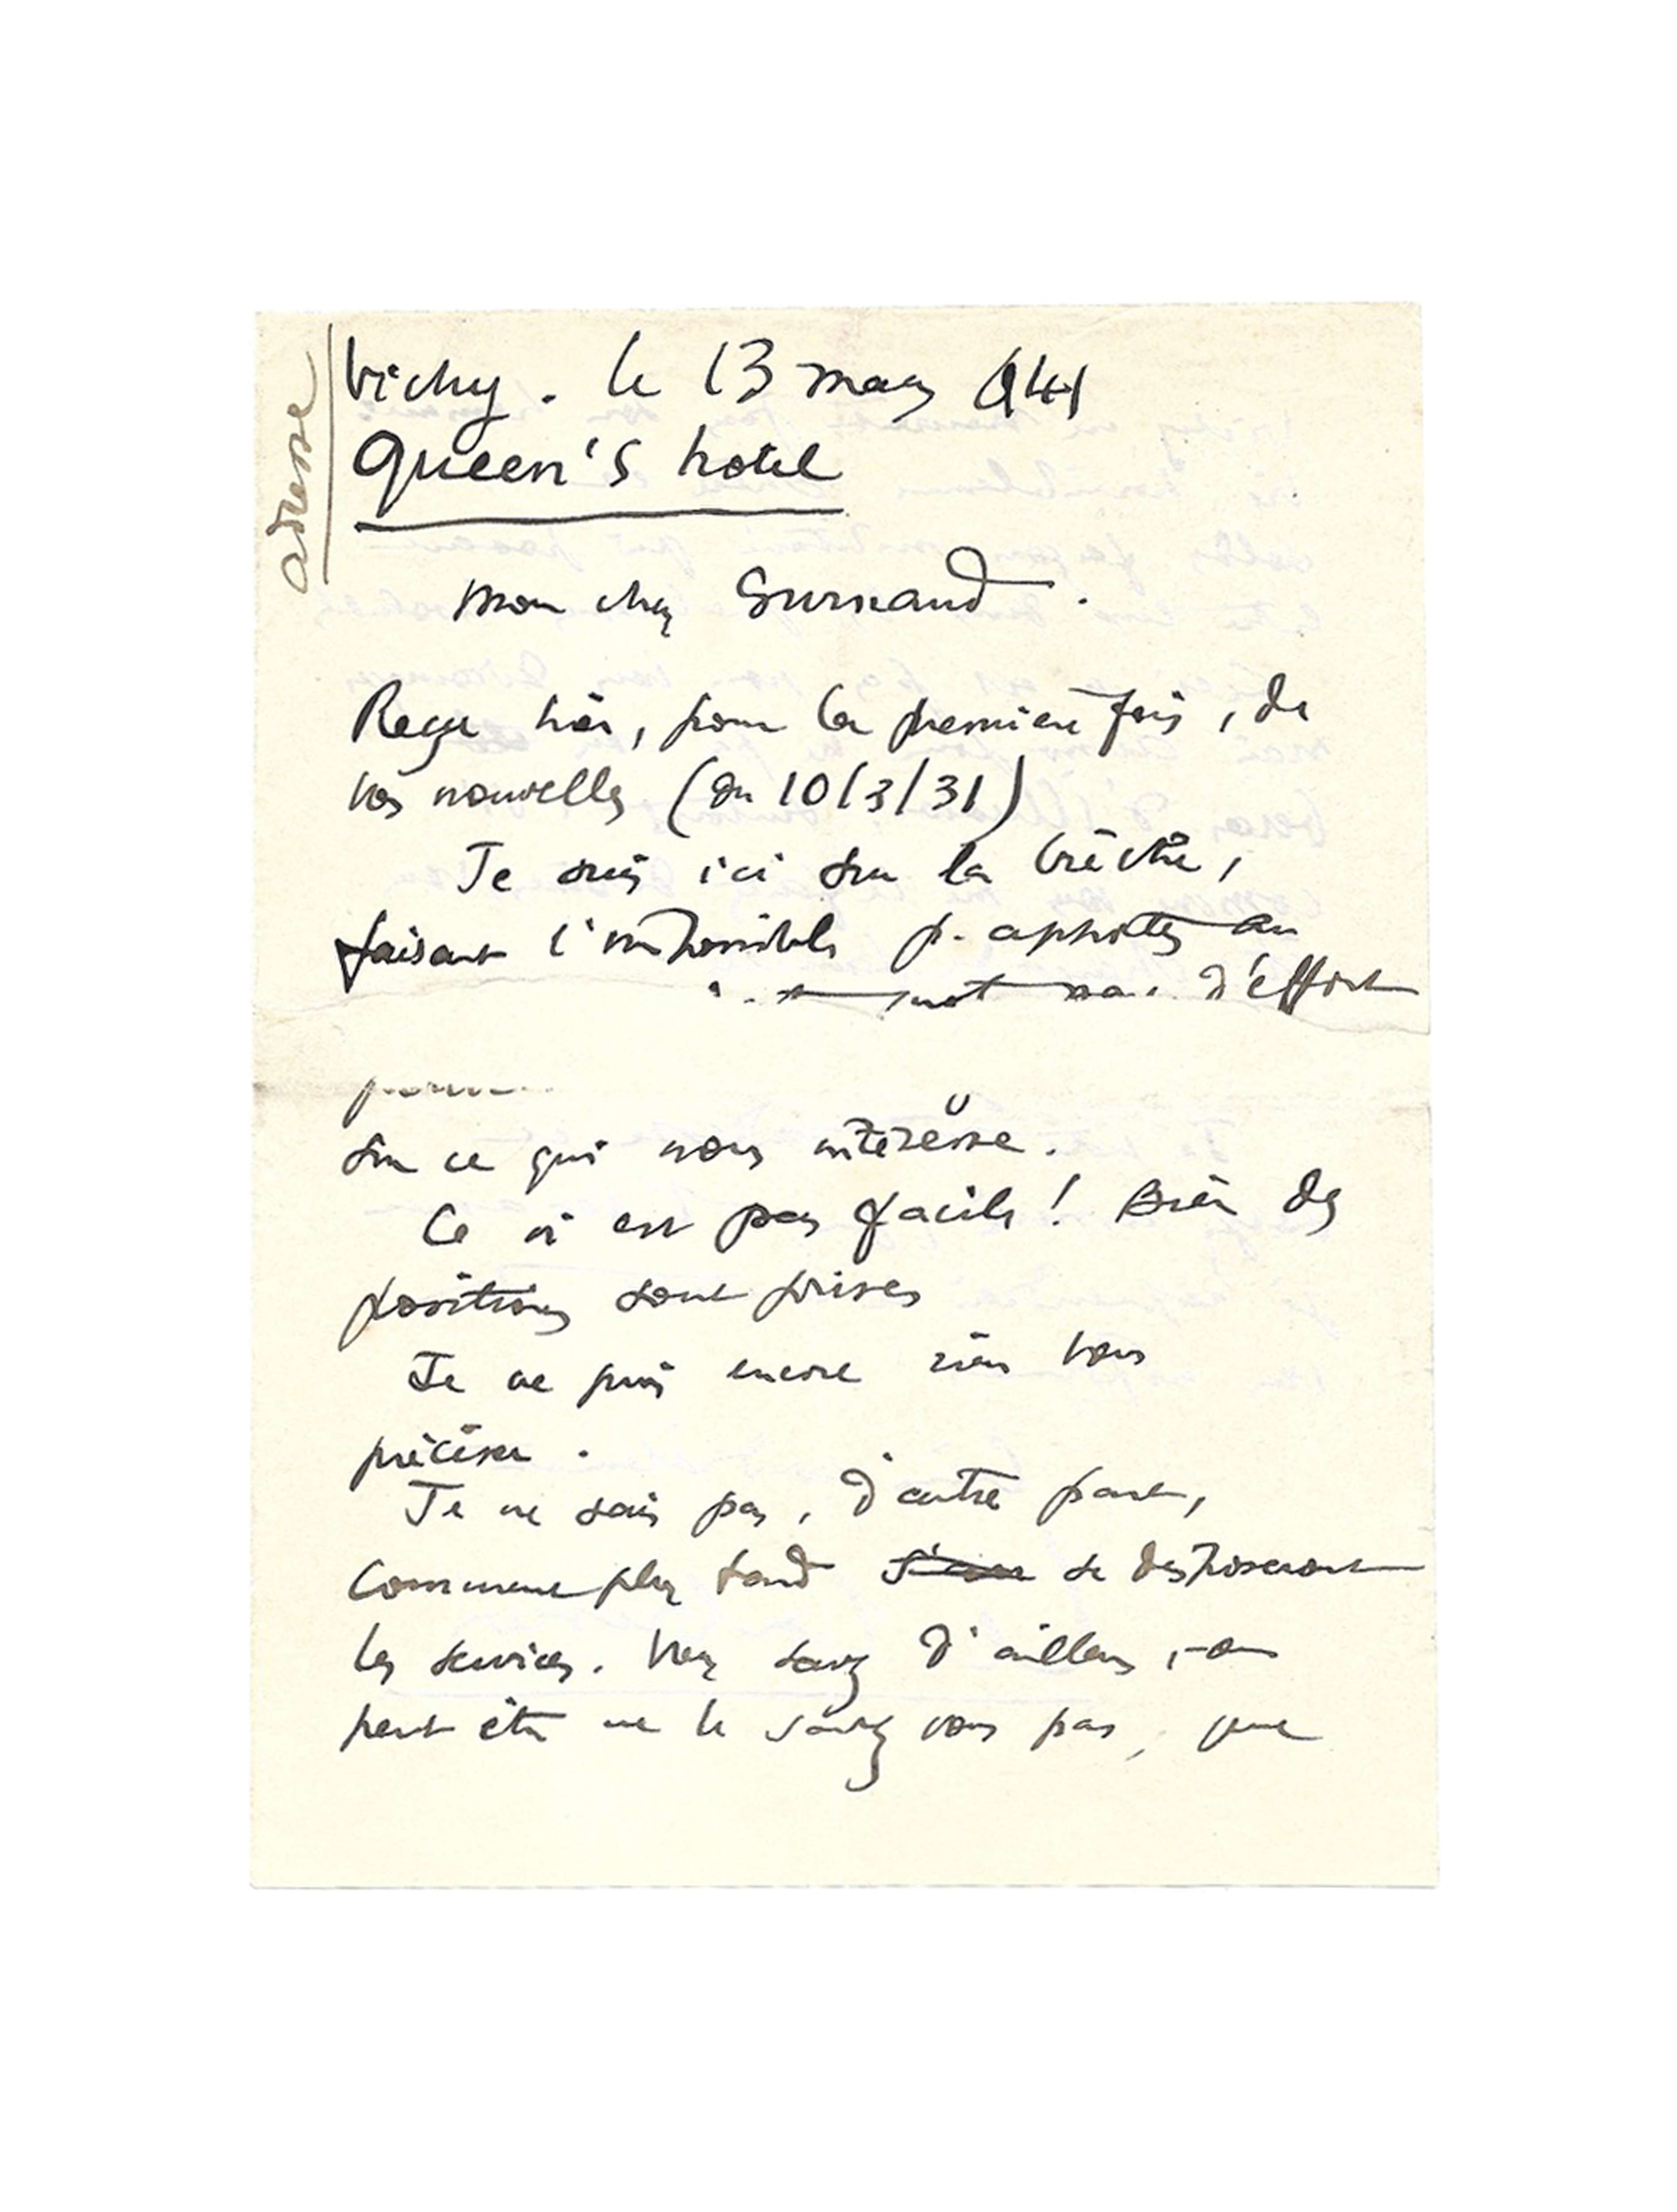 adresse
Vichy. le 13 mars 941
Queen's hotel
Mon cher Gurnaud.
Reçu hier, pour la première fois, de
vos nouvelles (du 10/3/31)
Je suis ici sur la brèche,
faisant l'impossible p.
d'effort
sur ce qui nous intéresse.
Ce n'est pas facile! Bien des
positions sont prises
Je ne puis encore rien vous
préciser.
Je ne sais pas, d'autre part,
comment plus tard se disposeront
les services. Vous savez d'ailleurs, - ou
peut être ne le savez vous pas, que